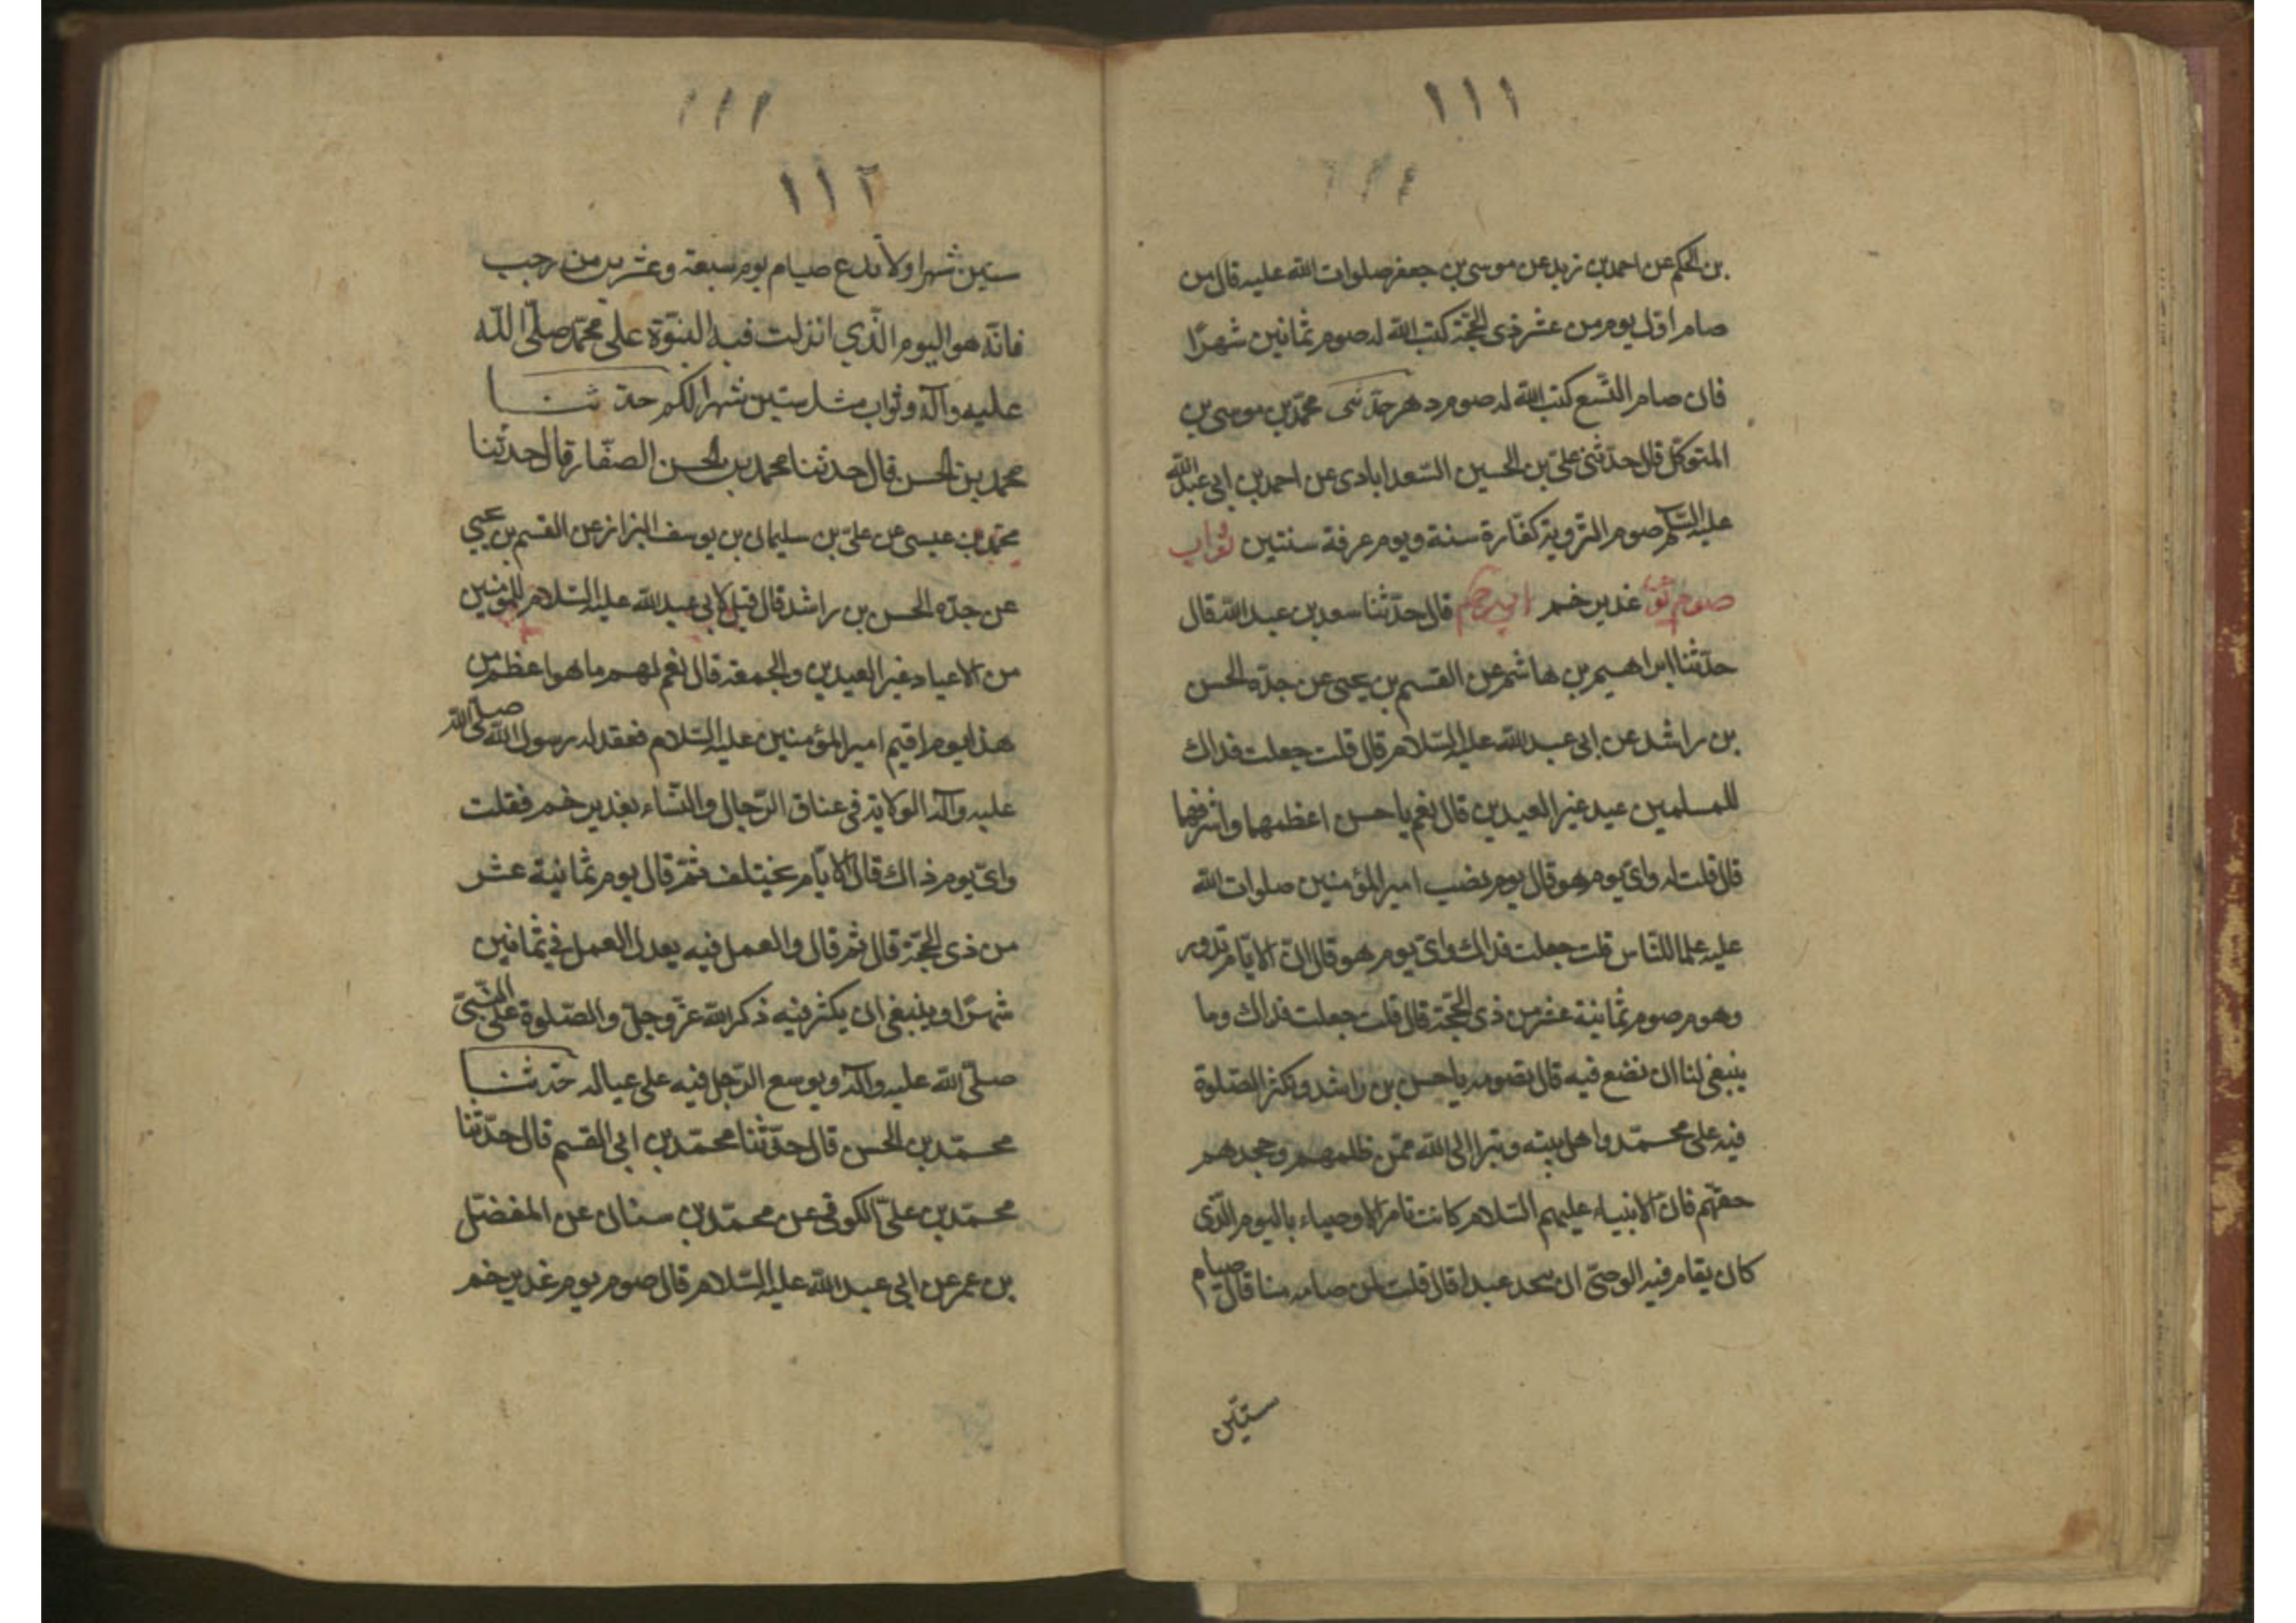 ١١١
بن الحكم عن احمد بن زيد عن موسى بن جعفر صلوات الله عليه قال من
صام اول يوم من عشر ذى الحجّة كتب الله له صوم ثمانين شهرًا
فان صام التّسع كتب الله له صوم دهر حدّثنى محمّد بن موسى بن
المتوكّل قال حدّثنى علىّ بن الحسين السّعدابادى عن احمد بن ابى عبد الله
عليه السّلم صوم التّروية كفّارة سنة ويوم عرفة سنتين ثواب
صوم يوم غدير خم ابى رحم قال حدّثنا سعد بن عبد الله قال
حدّثنا ابراهيم بن هاشم عن القسم بن يحيى عن جدّه الحسن
بن راشد عن ابى عبد الله عليه السّلام قال قلت جعلت فداك
للمسلمين عيد غير العيدين قال نعم يا حسن اعظمهما واشرفهما
قال قلت له واىّ يوم هو قال يوم نصب امير المؤمنين صلوات الله
عليه علما للنّاس قلت جعلت فداك واىّ يوم هو قال انّ الايّام تدور
وهو مرصوم ثمانية عشر من ذى الحجّة قال قلت جعلت فداك وما
ينبغى لنا ان نضع فيه قال تصومه يا حسن بن راشد وتكثر الصّلوة
فيه على محمّد واهل بيته وتبرا الى الله ممّن ظلمهم وجحدهم
حقّهم فانّ الانبياء عليهم السّلام كانت تامر الاوصياء باليوم الّذى
كان يقام فيه الوصىّ ان يتّخذ عيدا قال قلت لمن صامه منا قال صيام
ستّين
١١١
١١٢
ستين شهرا ولا تدع صيام يوم سبعة وعشرين من رجب
فانّه هو اليوم الّذي انزلت فيه النبوّة على محمّد صلّى اللّه
عليه وآله وثواب مثل ستين شهرا لكم حدثنا
محمد بن الحسن قال حدثنا محمد بن الحسن الصفّار قال حدثنا
محمّد بن عيسى عن علىّ بن سليمان بن يوسف البزاز عن القسم بن يحيى
عن جدّه الحسن بن راشد قال قيل لابى عبد الله عليه السّلام للمؤمنين
من الاعياد غير العيدين والجمعة قال نعم لهم ما هو اعظم من
هذا يوم اقيم امير المؤمنين عليه السّلام فعقد له رسول الله صلّى الله
عليه وآله الولاية فى عناق الرّجال والنّساء بغدير خم فقلت
واىّ يوم ذاك قال الايّام تختلف ثمّ قال يوم ثمانية عشر
من ذى الحجّة قال ثم قال والعمل فيه يعدل العمل فى ثمانين
شهرًا وينبغى ان يكثر فيه ذكر الله عزّ وجلّ والصّلوة على النّبىّ
صلّى الله عليه وآله ويوسع الرّجل فيه على عياله حدثنا
محمّد بن الحسن قال حدّثنا محمّد بن ابى القسم قال حدّثنا
محمّد بن علىّ الكوفى عن محمّد بن سنان عن المفضّل
بن عمر عن ابى عبد الله عليه السّلام قال صوم يوم غدير خم